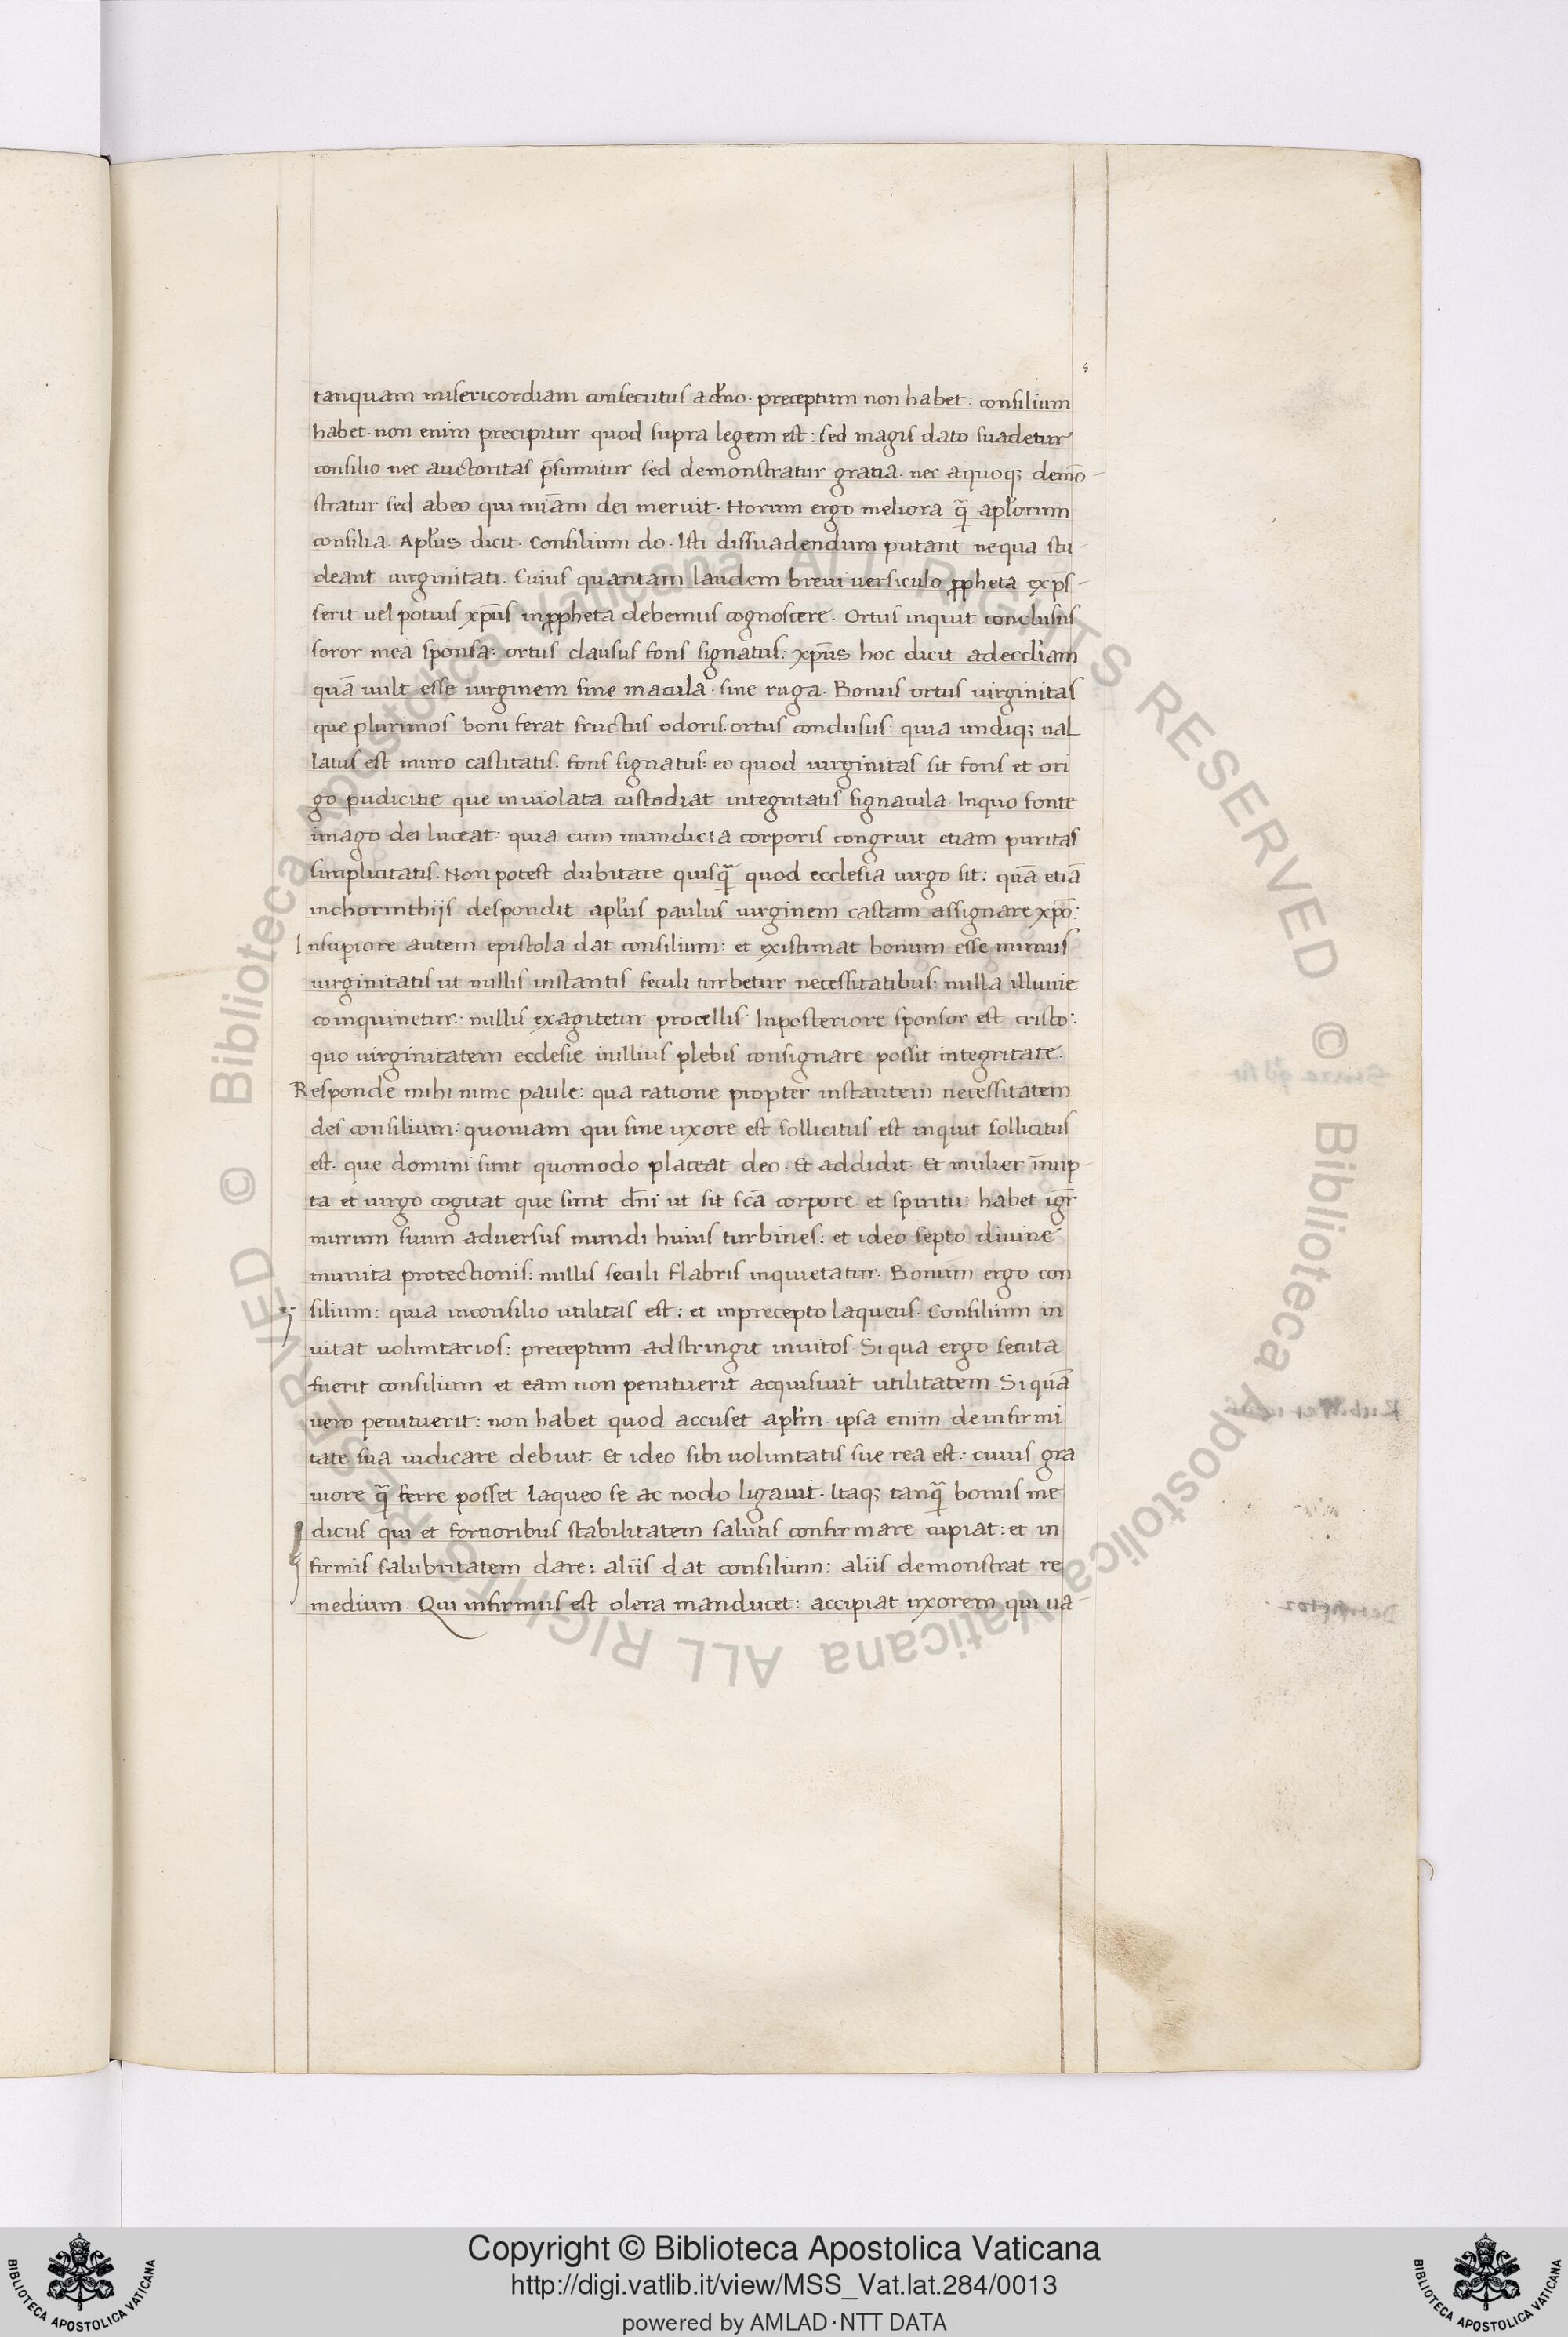 5
tanquam misericordiam consecutus a dño. preceptum non habet: consilium
habet. non enim precipitur quod supra legem est: sed magis dato suadetur
consilio nec auctoritas p̄sumitur sed demonstratur gratia. nec a quoq; demō-
stratur sed ab eo qui miām dei meruit. Horum ergo meliora q̄ apl'orum
consilia. Apl'us dicit. Consilium do. Isti dissuadendum putant ne qua stu-
deant virginitati. Cuius quantam laudem brevi versiculo ꝓpheta exp̄s-
serit vel potius xp̄us in ꝓpheta debemus cognoscere. Ortus inquit conclusus
soror mea sponsa: ortus clausus fons signatus: xp̄us hoc dicit ad eccl'iam
quā vult esse virginem sine macula. sine ruga. Bonus ortus virginitas
que plurimos boni ferat fructus odoris: ortus conclusus: quia undiq; val
latus est muro castitatis. fons signatus: eo quod virginitas sit fons et ori
go pudicitie que inviolata custodiat integritatis signacula. In quo fonte
imago dei luceat: quia cum mundicia corporis congruit etiam puritas
simplicitatis. Non potest dubitare quisq̄ quod ecclesia virgo sit: quā etiā
in chorinthijs despondit apl'us paulus virginem castam assignare xp̄o:
In sup̱iore autem epistola dat consilium: et existimat bonum esse munus
virginitatis ut nullis instantis seculi turbetur necessitatibus: nulla illuvie
coinquinetur: nullis exagitetur procellis. In posteriore sponsor est cristo:
quo virginitatem ecclesie in illius plebis consignare possit integritate.
Responde mihi nunc paule: qua ratione propter instantem necessitatem
des consilium: quoniam qui sine uxore est sollicitus est inquit sollicitus
est. que domini sunt quomodo placeat deo. Et addidit. Et mulier īnup-
ta et virgo cogitat que sunt dñi ut sit scā corpore et spiritu: habet igr̄
murum suum adversus mundi huius turbines: et ideo septo divine
munita protectionis: nullis seculi flabris inquietatur. Bonum ergo con
silium: quia in consilio utilitas est: et in precepto laqueus. Consilium in
vitat voluntarios: preceptum adstringit invitos Si qua ergo secuta
fuerit consilium et eam non penituerit acquisivit utilitatem. Si quā
vero penituerit: non habet quod accuset apl'm. ipsa enim de infirmi
tate sua iudicare debuit. Et ideo sibi voluntatis sue rea est: cuius gra
viore q̄ ferre posset laqueo se ac nodo ligavit. Itaq; tanq̄ bonus me
dicus qui et fortioribus stabilitatem salutis confirmare cupiat: et in
firmis salubritatem dare: aliis dat consilium: aliis demonstrat re
medium. Qui infirmus est olera manducet: accipiat uxorem qui va-
© Biblioteca Apostolica Vaticana ALL RIGHTS RESERVED © Biblioteca Apostolica Vaticana ALL RIGHTS RESERVED
Copyright © Biblioteca Apostolica Vaticana
http://digi.vatlib.it/view/MSS_Vat.lat.284/0013
powered by AMLAD·NTT DATA
BIBLIOTECA APOSTOLICA VATICANA
BIBLIOTECA APOSTOLICA VATICANA